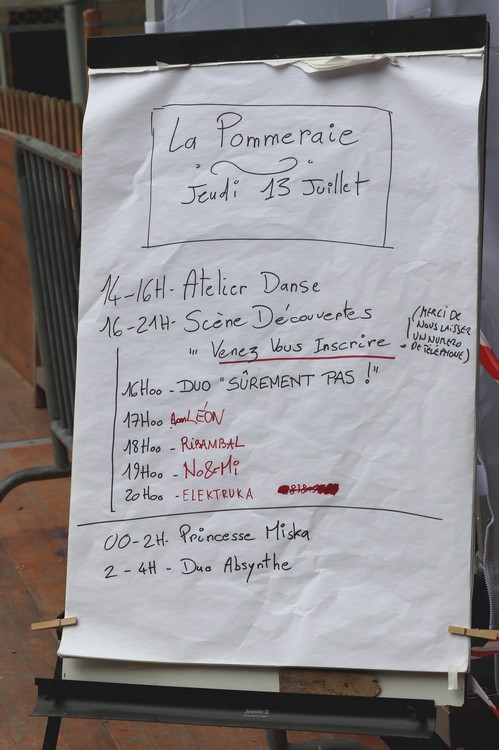 La Pommeraie
Jeudi 13 Juillet
14-16H- Atelier Danse
16-21H- Scène Découvertes
"' Venez Vous Inscrire
(MERCI DE
NOUS LAISSER
UN NUMERO
DE TÉLÉPHONE)
16H00 - DUO "SÛREMENT PAS !"
17H00 LÉON
18H00 - RIBAMBAL
19H00 - No&Mi
20H00 - ELEKTRUKA
00-2H- Princesse Miska
2-4H - Duo Absynthe